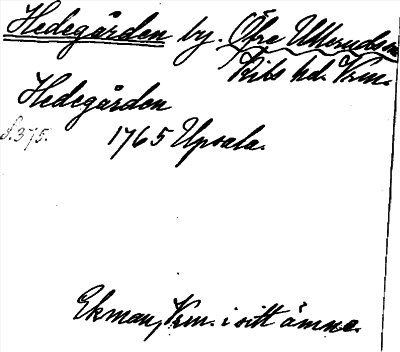 Hedegården by. Övre Ulleruds sn
Kils hd. Vrm.
Hedegården
s. 375.
1765 Upsala.
Ekman, Vrm. i sitt ämne.